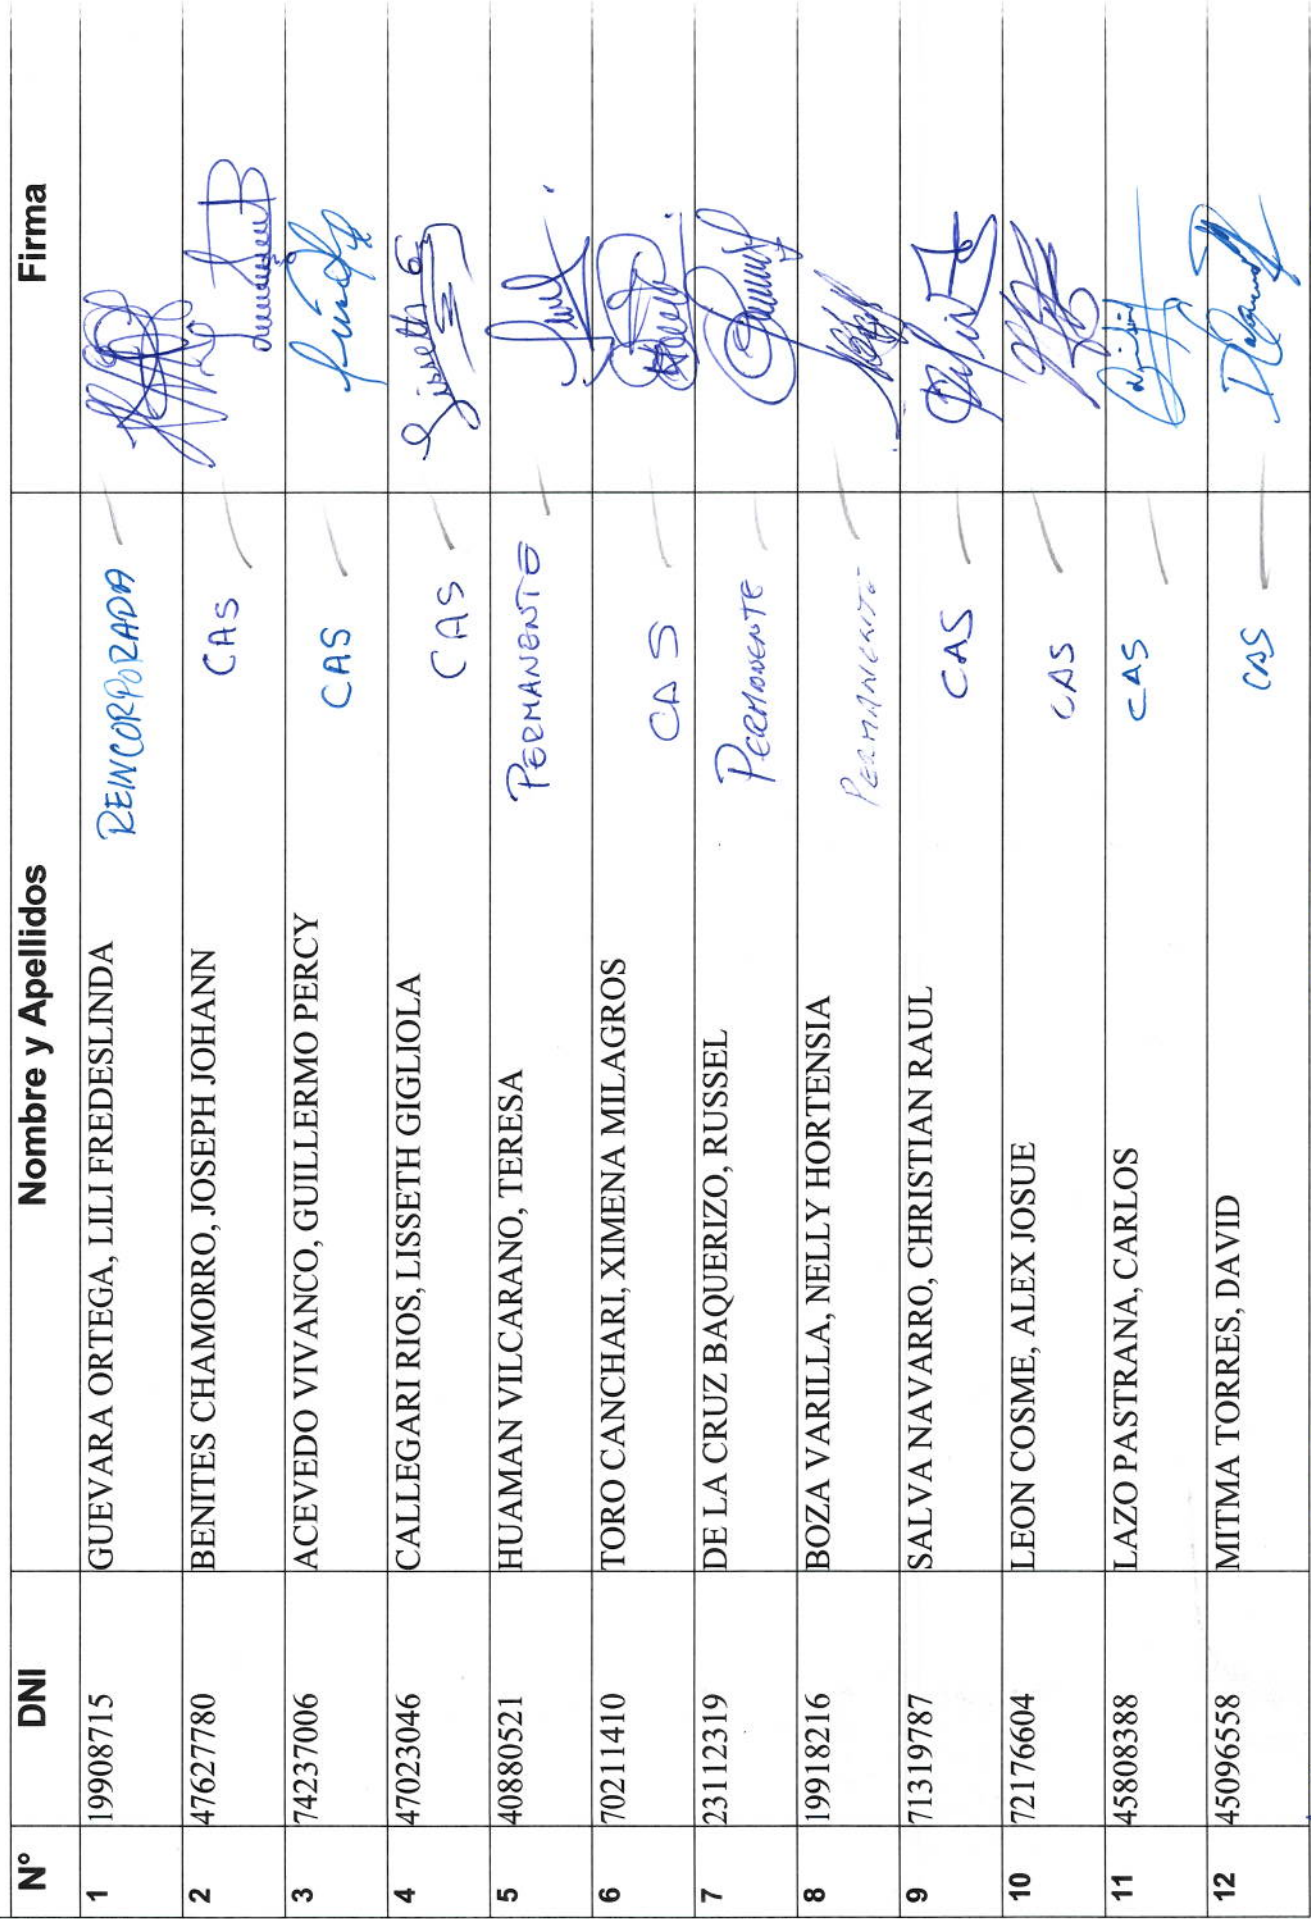 N° DNI Nombre y Apellidos Firma
1 19908715 GUEVARA ORTEGA, LILI FREDESLINDA REINCORPORADA
2 47627780 BENITES CHAMORRO, JOSEPH JOHANN CAS
3 74237006 ACEVEDO VIVANCO, GUILLERMO PERCY CAS
4 47023046 CALLEGARI RIOS, LISSETH GIGLIOLA CAS Lisseth G
5 40880521 HUAMAN VILCARANO, TERESA PERMANENTE
6 70211410 TORO CANCHARI, XIMENA MILAGROS CAS
7 23112319 DE LA CRUZ BAQUERIZO, RUSSEL PERMANENTE
8 19918216 BOZA VARILLA, NELLY HORTENSIA PERMANENTE
9 71319787 SALVA NAVARRO, CHRISTIAN RAUL CAS
10 72176604 LEON COSME, ALEX JOSUE CAS
11 45808388 LAZO PASTRANA, CARLOS CAS
12 45096558 MITMA TORRES, DAVID CAS